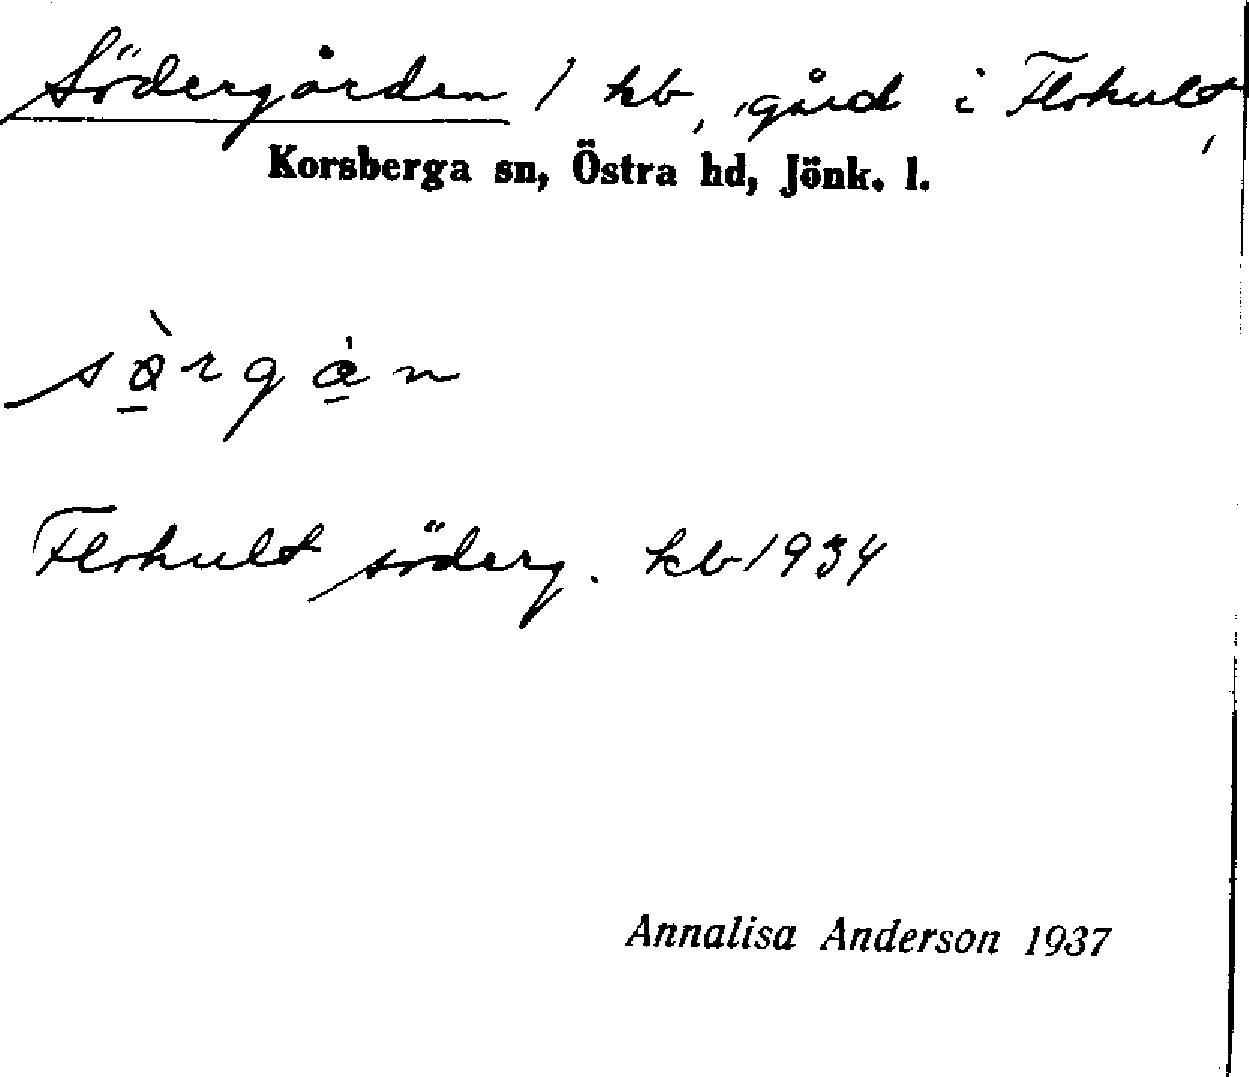 Södergården / kb, gård i Flohult,
Korsberga sn, Östra hd, Jönk. l.
Flohult söderg. kb 1934
Annalisa Anderson 1937